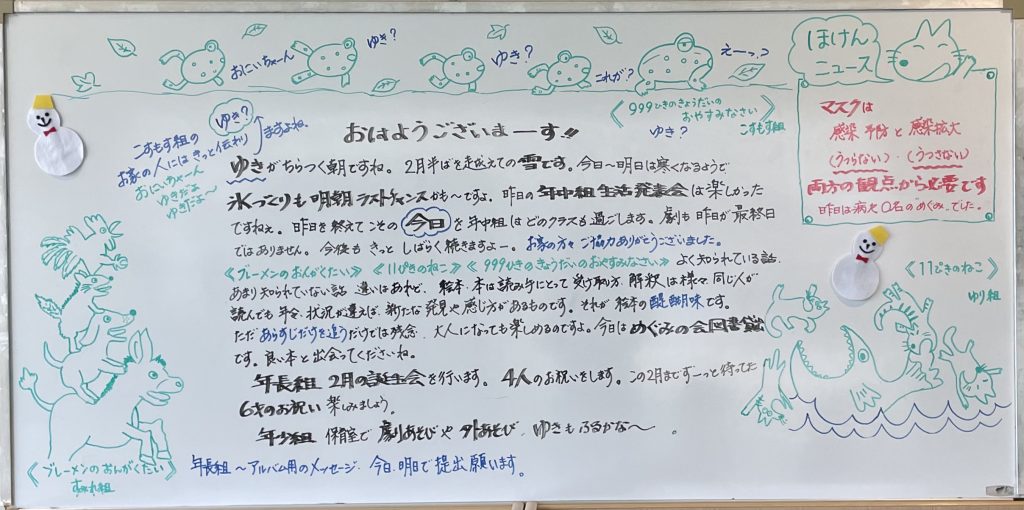 おにいちゃーん
ゆき?
ゆき?
これが?
えーっ?
《999ひきのきょうだいの
おやすみなさい》
こすもす組
ゆき?
ほけん
ニュース
マスクは
感染予防と感染拡大
(うつらない)・(うつさない)
両方の観点から必要です
昨日は病欠0名のめぐみ。でした。
ゆき?
こすもす組の
お家の人にはきっと伝わりますよね。
おにいちゃーん
ゆきだよ
ゆきだよ〜
おはようございまーす!!
ゆきがちらつく朝ですね。2月半ばを越えての雪です。今日〜明日は寒くなるようで
氷づくりも明朝ラストチャンスかも〜ですよ。昨日の年中組生活発表会は楽しかった
ですねぇ。昨日を終えてこその今日を年中組はどのクラスも過ごします。劇も昨日が最終日
ではありません。今後もきっとしばらく続きますよー。お家の方々ご協力ありがとうございました。
《ブレーメンのおんがくたい》《11ぴきのねこ》《999ひきのきょうだいのおやすみなさい》よく知られている話、
あまり知られていない話、違いはあれど、絵本、本は読み手にとって受け取り方、解釈は様々、同じ人が
読んでも年令、状況が違えば、新たな発見や感じ方があるものです。それが絵本の醍醐味です。
ただあらすじだけを追うだけでは残念、大人になっても楽しめるのですよ。今日はめぐみの会図書貸出
です。良い本と出会ってくださいね。
年長組 2月の誕生会を行います。4人のお祝いをします。この2月までずーっと待ってた
6才のお祝い楽しみましょう。
年少組 保育室で劇あそびや外あそび、ゆきもふるかな〜。
年長組〜アルバム用のメッセージ、今日、明日で提出願います。
《ブレーメンのおんがくたい》
すみれ組
《11ぴきのねこ》
ゆり組